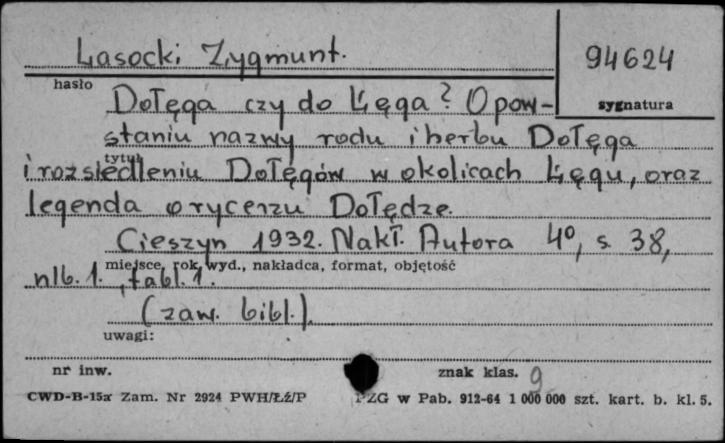 Lasocki Zygmunt.
94624
hasło
sygnatura
Dołęga czy do Łęga? O pow-
staniu nazwy rodu i herbu Dołęga
tytuł
i rozsiedleniu Dołęgów w okolicach Łęgu, oraz
legenda o rycerzu Dołędze.
Cieszyn 1932. Nakł. Autora 4º, s. 38,
miejsce, rok, wyd., nakładca, format, objętość
nlb. 1. , tabl. 1.
(zaw. bibl.).
uwagi:
nr inw.
znak klas. 9
CWD-B-15a Zam. Nr 2924 PWH/Łź/P
PZG w Pab. 912-64 1 000 000 szt. kart. b. kl. 5.